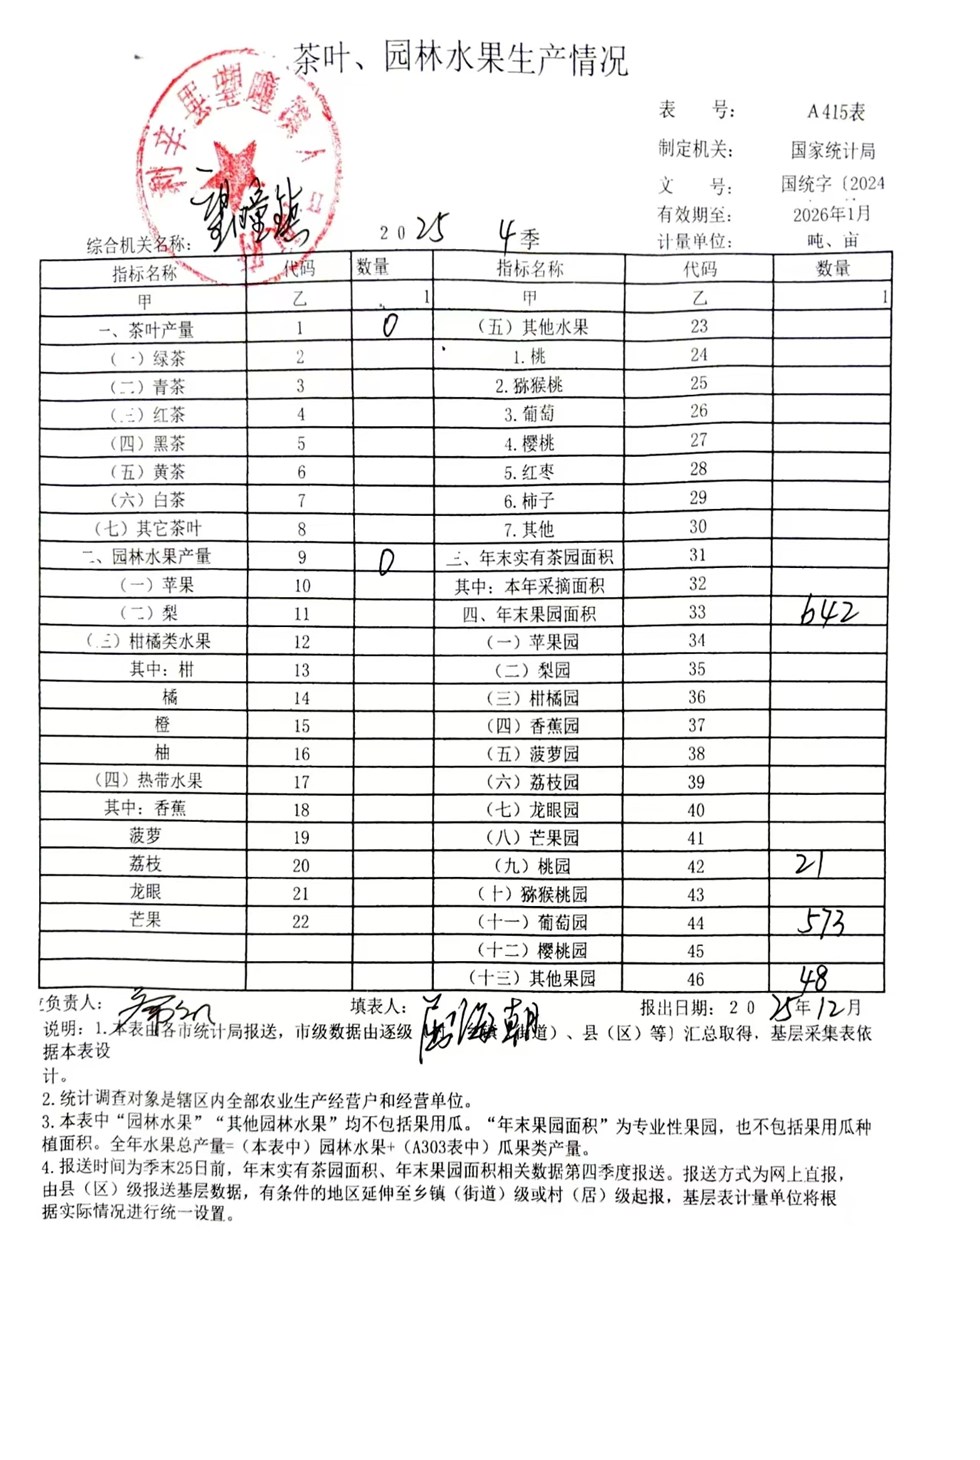 茶叶、园林水果生产情况
表 号: A415表
制定机关: 国家统计局
文 号: 国统字〔2024
有效期至: 2026年1月
综合机关名称: 望疃镇 2025 4季 计量单位: 吨、亩
指标名称 代码 数量 指标名称 代码 数量
甲 乙 1 甲 乙 1
一、茶叶产量 1 0 （五）其他水果 23
（一）绿茶 2 1.桃 24
（二）青茶 3 2.猕猴桃 25
（三）红茶 4 3.葡萄 26
（四）黑茶 5 4.樱桃 27
（五）黄茶 6 5.红枣 28
（六）白茶 7 6.柿子 29
（七）其它茶叶 8 7.其他 30
二、园林水果产量 9 0 三、年末实有茶园面积 31
（一）苹果 10 其中：本年采摘面积 32
（二）梨 11 四、年末果园面积 33 642
（三）柑橘类水果 12 （一）苹果园 34
其中：柑 13 （二）梨园 35
橘 14 （三）柑橘园 36
橙 15 （四）香蕉园 37
柚 16 （五）菠萝园 38
（四）热带水果 17 （六）荔枝园 39
其中：香蕉 18 （七）龙眼园 40
菠萝 19 （八）芒果园 41
荔枝 20 （九）桃园 42 21
龙眼 21 （十）猕猴桃园 43
芒果 22 （十一）葡萄园 44 573
（十二）樱桃园 45
（十三）其他果园 46 48
负责人： 填表人： 海朝 报出日期：2025年12月
说明：1.本表由各市统计局报送，市级数据由逐级 街道）、县（区）等〕汇总取得，基层采集表依
据本表设
计。
2.统计调查对象是辖区内全部农业生产经营户和经营单位。
3.本表中“园林水果”“其他园林水果”均不包括果用瓜。“年末果园面积”为专业性果园，也不包括果用瓜种
植面积。全年水果总产量=（本表中）园林水果+（A303表中）瓜果类产量。
4.报送时间为季末25日前，年末实有茶园面积、年末果园面积相关数据第四季度报送。报送方式为网上直报，
由县（区）级报送基层数据，有条件的地区延伸至乡镇（街道）级或村（居）级起报，基层表计量单位将根
据实际情况进行统一设置。